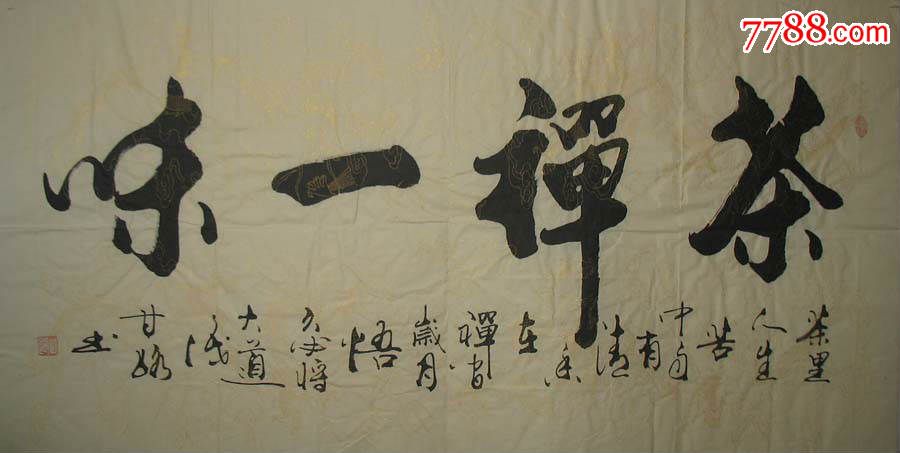 7788.com
茶禪一味
茶里
人生
苦
中自
有
清
香
在
禪宫
歲月
悟
大道
甘
书